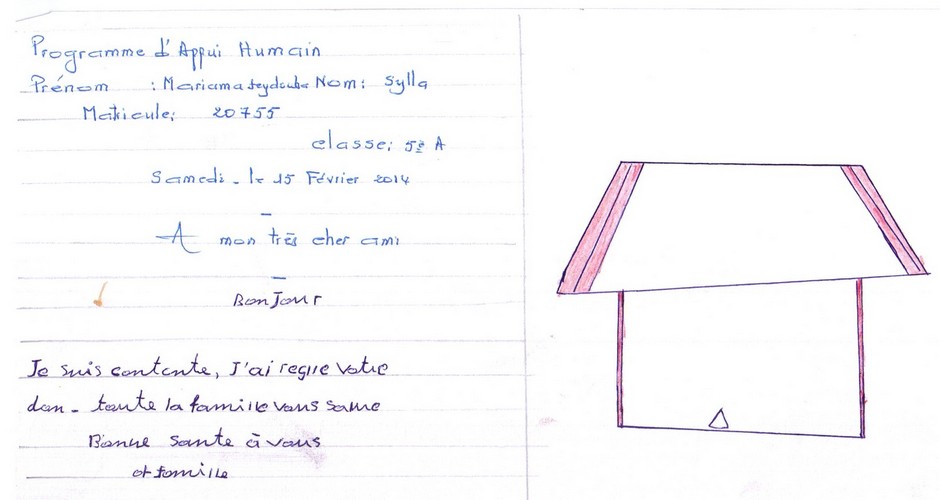 Programme d'Appui Humain
Prénom : Mariama seydouba Nom: Sylla
Matricule: 20755
classe: 5è A
Samedi - le 15 Février 2014
A mon très cher ami
BonJour
Je suis contente, J'ai reçue votre
don - toute la famille vous salue
Bonne sante à vous
et famille